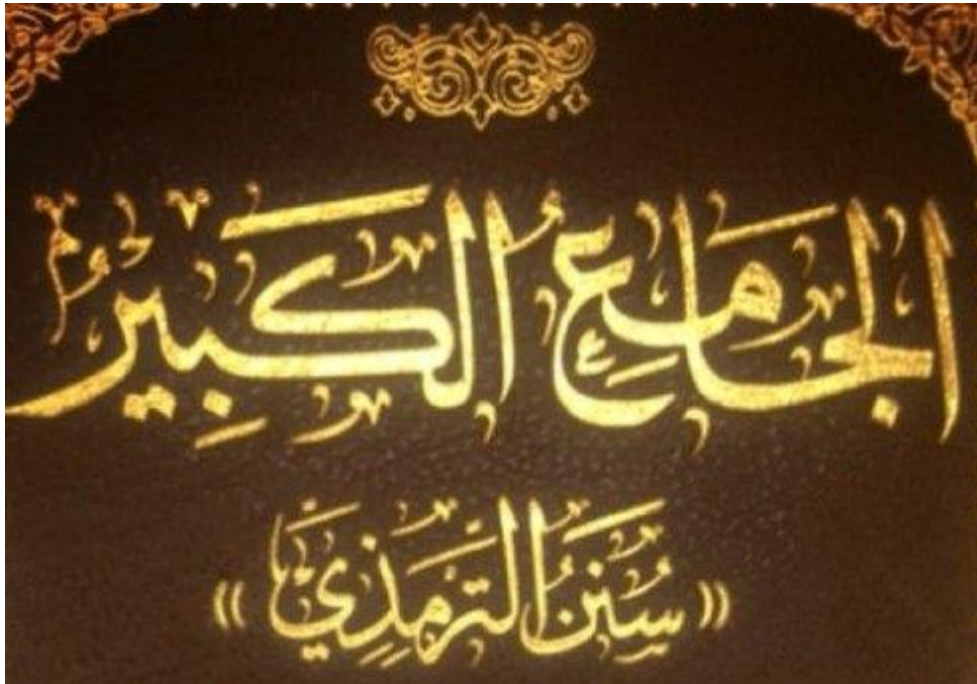 الجَامِعُ الكَبِيرُ
«سُنَنُ التِّرمِذِيِّ»